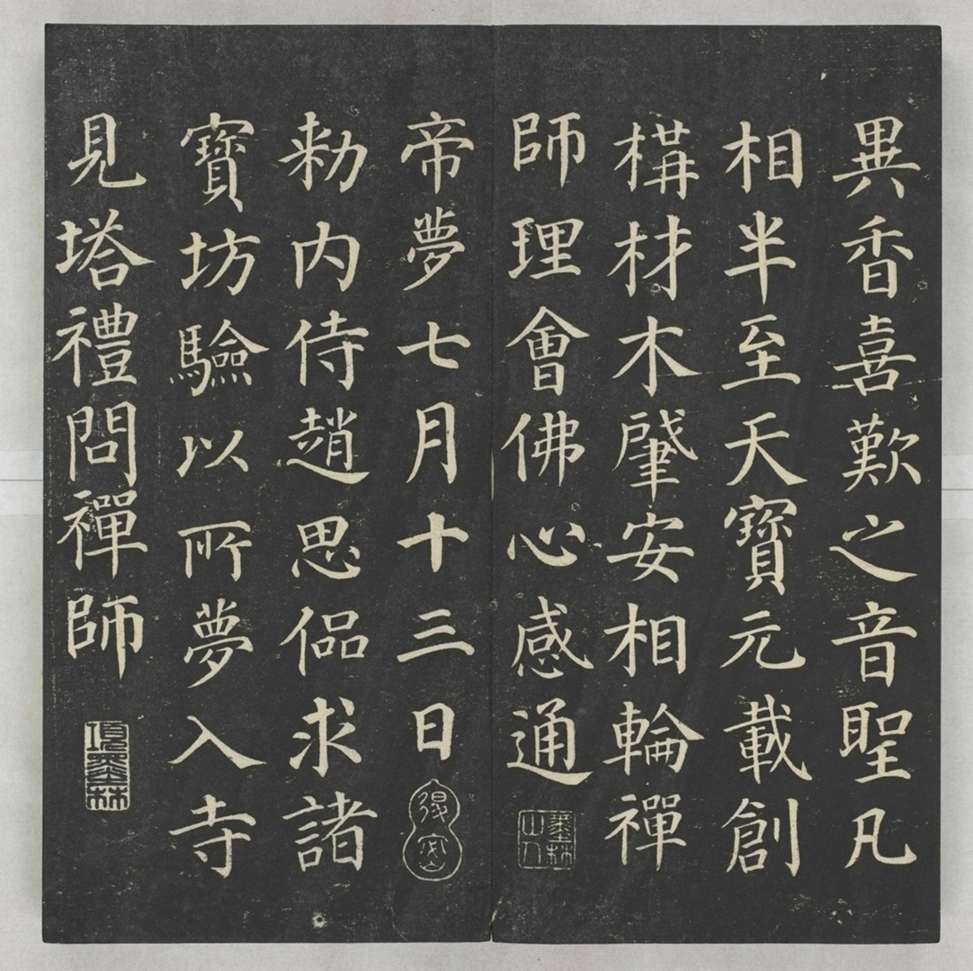 異香喜歎之音聖凡
相半至天寶元載創
構材木肇安相輪禪
師理會佛心感通
墨林山人
帝夢七月十三日
勅内侍趙思侃求諸
寶坊驗以所夢入寺
見塔禮問禪師
項墨林